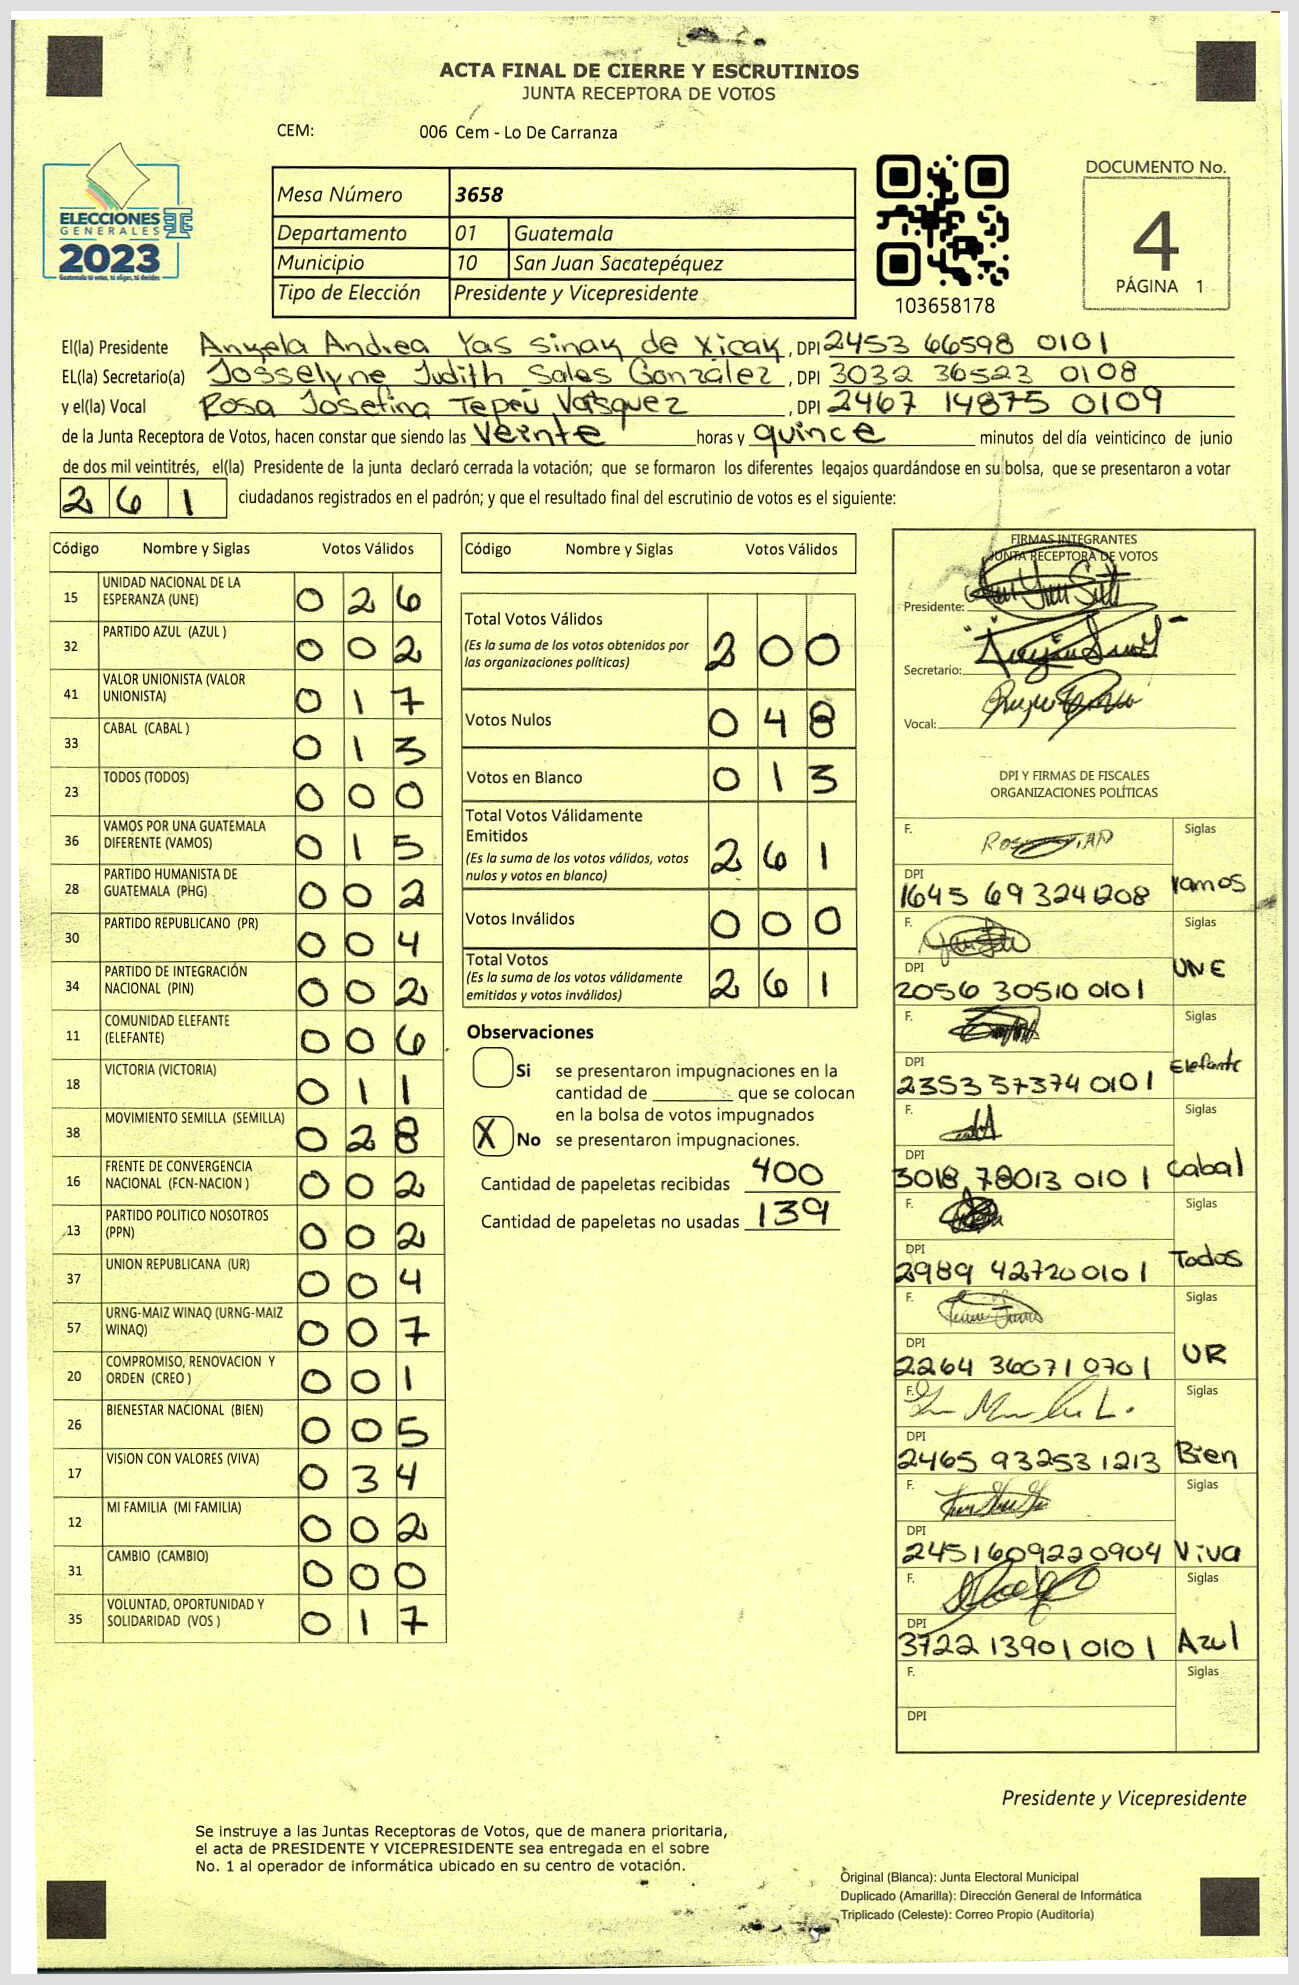 ACTA FINAL DE CIERRE Y ESCRUTINIOS
JUNTA RECEPTORA DE VOTOS
CEM: 006 Cem - Lo De Carranza
ELECCIONES
GENERALES
2023
Guatemala tú votas, tú eliges, tú decides
Mesa Número 3658
Departamento 01 Guatemala
Municipio 10 San Juan Sacatepéquez
Tipo de Elección Presidente y Vicepresidente
103658178
DOCUMENTO No.
4
PÁGINA 1
El(la) Presidente Angela Andrea Yas Sinay de Xicay, DPI 2453 66598 0101
EL(la) Secretario(a) Josselyne Judith Sales González, DPI 3032 36523 0108
y el(la) Vocal Rosa Josefina Tepeu Vásquez, DPI 2467 14875 0109
de la Junta Receptora de Votos, hacen constar que siendo las veinte horas y quince minutos del día veinticinco de junio
de dos mil veintitrés, el(la) Presidente de la junta declaró cerrada la votación; que se formaron los diferentes legajos guardándose en su bolsa, que se presentaron a votar
261 ciudadanos registrados en el padrón; y que el resultado final del escrutinio de votos es el siguiente:
Código Nombre y Siglas Votos Válidos
15 UNIDAD NACIONAL DE LA ESPERANZA (UNE) 026
32 PARTIDO AZUL (AZUL ) 002
41 VALOR UNIONISTA (VALOR UNIONISTA) 017
33 CABAL (CABAL ) 013
23 TODOS (TODOS) 000
36 VAMOS POR UNA GUATEMALA DIFERENTE (VAMOS) 015
28 PARTIDO HUMANISTA DE GUATEMALA (PHG) 002
30 PARTIDO REPUBLICANO (PR) 004
34 PARTIDO DE INTEGRACIÓN NACIONAL (PIN) 002
11 COMUNIDAD ELEFANTE (ELEFANTE) 006
18 VICTORIA (VICTORIA) 011
38 MOVIMIENTO SEMILLA (SEMILLA) 028
16 FRENTE DE CONVERGENCIA NACIONAL (FCN-NACION ) 002
13 PARTIDO POLITICO NOSOTROS (PPN) 002
37 UNION REPUBLICANA (UR) 004
57 URNG-MAIZ WINAQ (URNG-MAIZ WINAQ) 007
20 COMPROMISO, RENOVACION Y ORDEN (CREO ) 001
26 BIENESTAR NACIONAL (BIEN) 005
17 VISION CON VALORES (VIVA) 034
12 MI FAMILIA (MI FAMILIA) 002
31 CAMBIO (CAMBIO) 000
35 VOLUNTAD, OPORTUNIDAD Y SOLIDARIDAD (VOS ) 017
Código Nombre y Siglas Votos Válidos
Total Votos Válidos 200
(Es la suma de los votos obtenidos por
las organizaciones políticas)
Votos Nulos 048
Votos en Blanco 013
Total Votos Válidamente
Emitidos 261
(Es la suma de los votos válidos, votos
nulos y votos en blanco)
Votos Inválidos 000
Total Votos 261
(Es la suma de los votos válidamente
emitidos y votos inválidos)
Observaciones
Si se presentaron impugnaciones en la
cantidad de ________ que se colocan
en la bolsa de votos impugnados
X No se presentaron impugnaciones.
Cantidad de papeletas recibidas 400
Cantidad de papeletas no usadas 139
FIRMAS INTEGRANTES
JUNTA RECEPTORA DE VOTOS
Presidente:
Secretario:
Vocal:
DPI Y FIRMAS DE FISCALES
ORGANIZACIONES POLÍTICAS
F. Siglas
DPI 1645 69324 1208 Vamos
F. Siglas
DPI 2056 30510 0101 UNE
F. Siglas
DPI 2353 57374 0101 Elefante
F. Siglas
DPI 3018 78013 0101 Cabal
F. Siglas
DPI 2989 42720 0101 Todos
F. Siglas
DPI 2264 36071 0701 UR
F. Siglas
DPI 2465 93253 1213 Bien
F. Siglas
DPI 2451609220904 Viva
F. Siglas
DPI 3722 13901 0101 Azul
F. Siglas
DPI
Presidente y Vicepresidente
Se instruye a las Juntas Receptoras de Votos, que de manera prioritaria,
el acta de PRESIDENTE Y VICEPRESIDENTE sea entregada en el sobre
No. 1 al operador de informática ubicado en su centro de votación.
Original (Blanca): Junta Electoral Municipal
Duplicado (Amarilla): Dirección General de Informática
Triplicado (Celeste): Correo Propio (Auditoría)